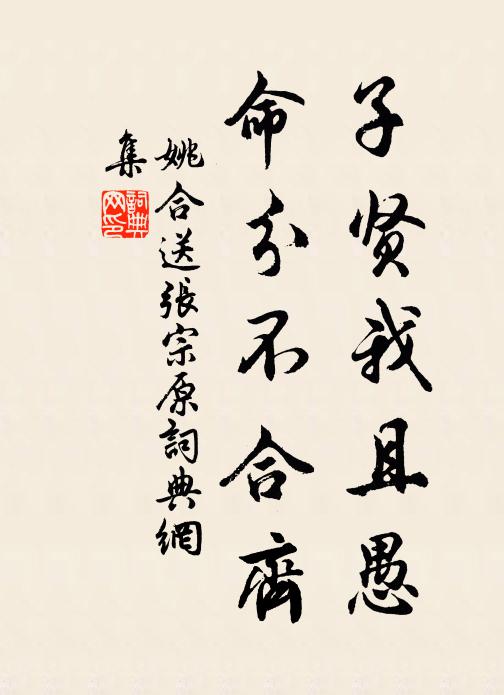 子贤我且愚
命分不合齊
姚合送張宗原詞典網
集
詞典
网印